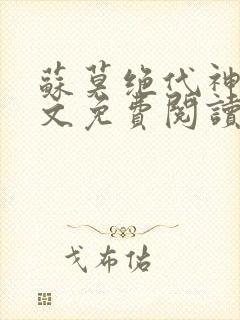 蘇莫绝代神
文免費閱讀
戈布佑